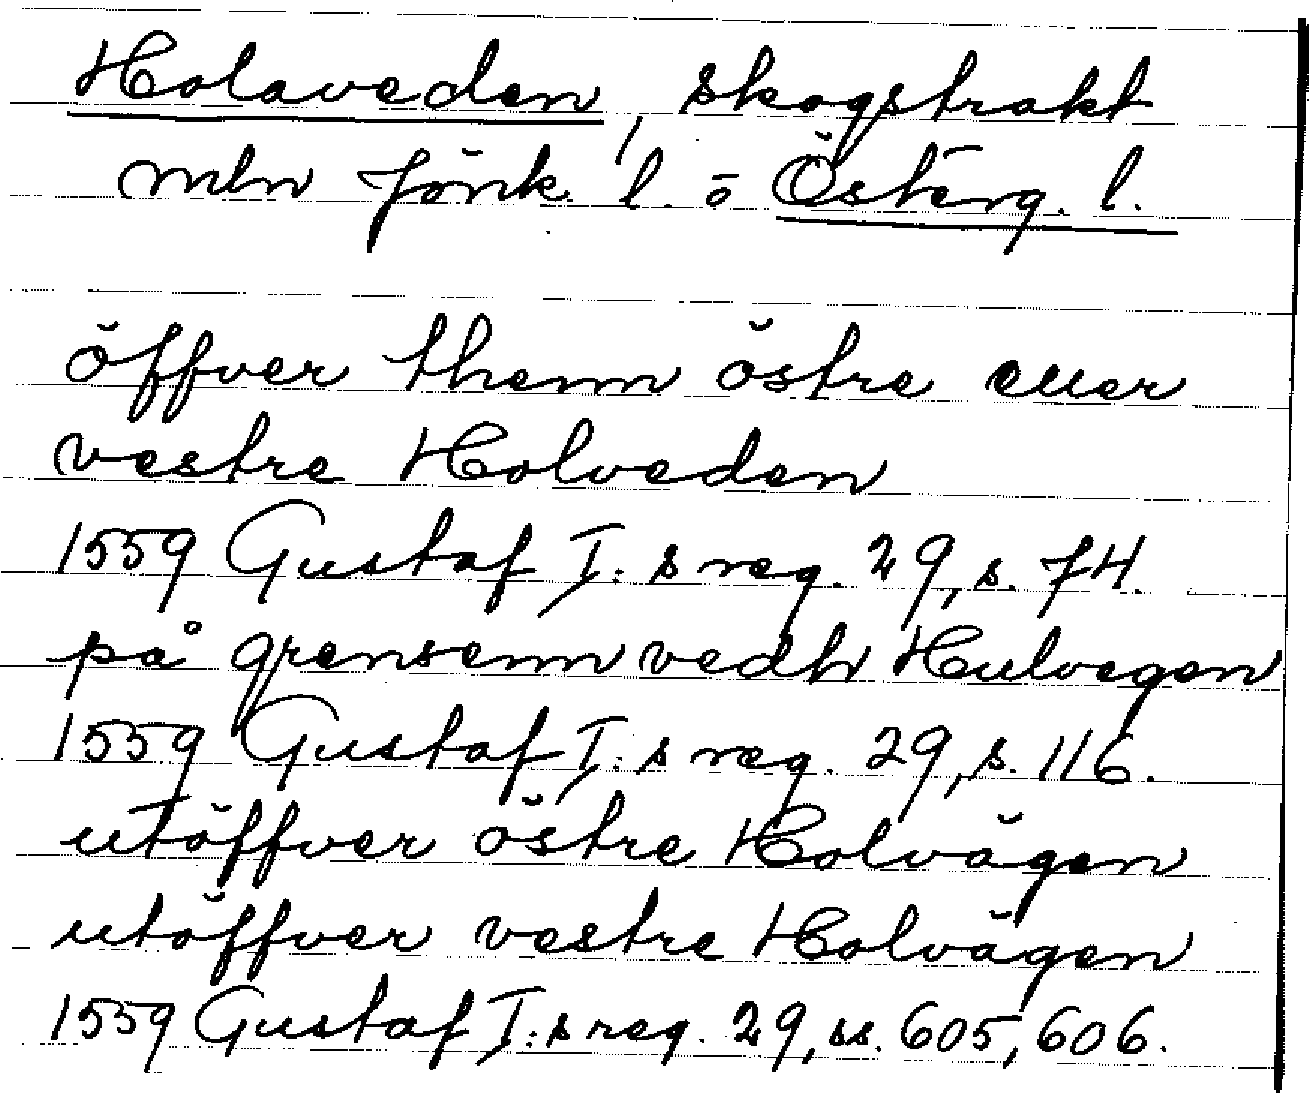 Holaveden, skogstrakt
mln Jönk. l. o Österg. l.
öffver themm östre eller
vestre Holveden
1559 Gustaf I:s reg. 29, s. 74.
på grensenn vedh Hulvegen
1559 Gustaf I:s reg. 29, s. 116.
utöffver östre Holvägen
utöffver vestre Holvägen
1559 Gustaf I:s reg. 29, ss. 605, 606.